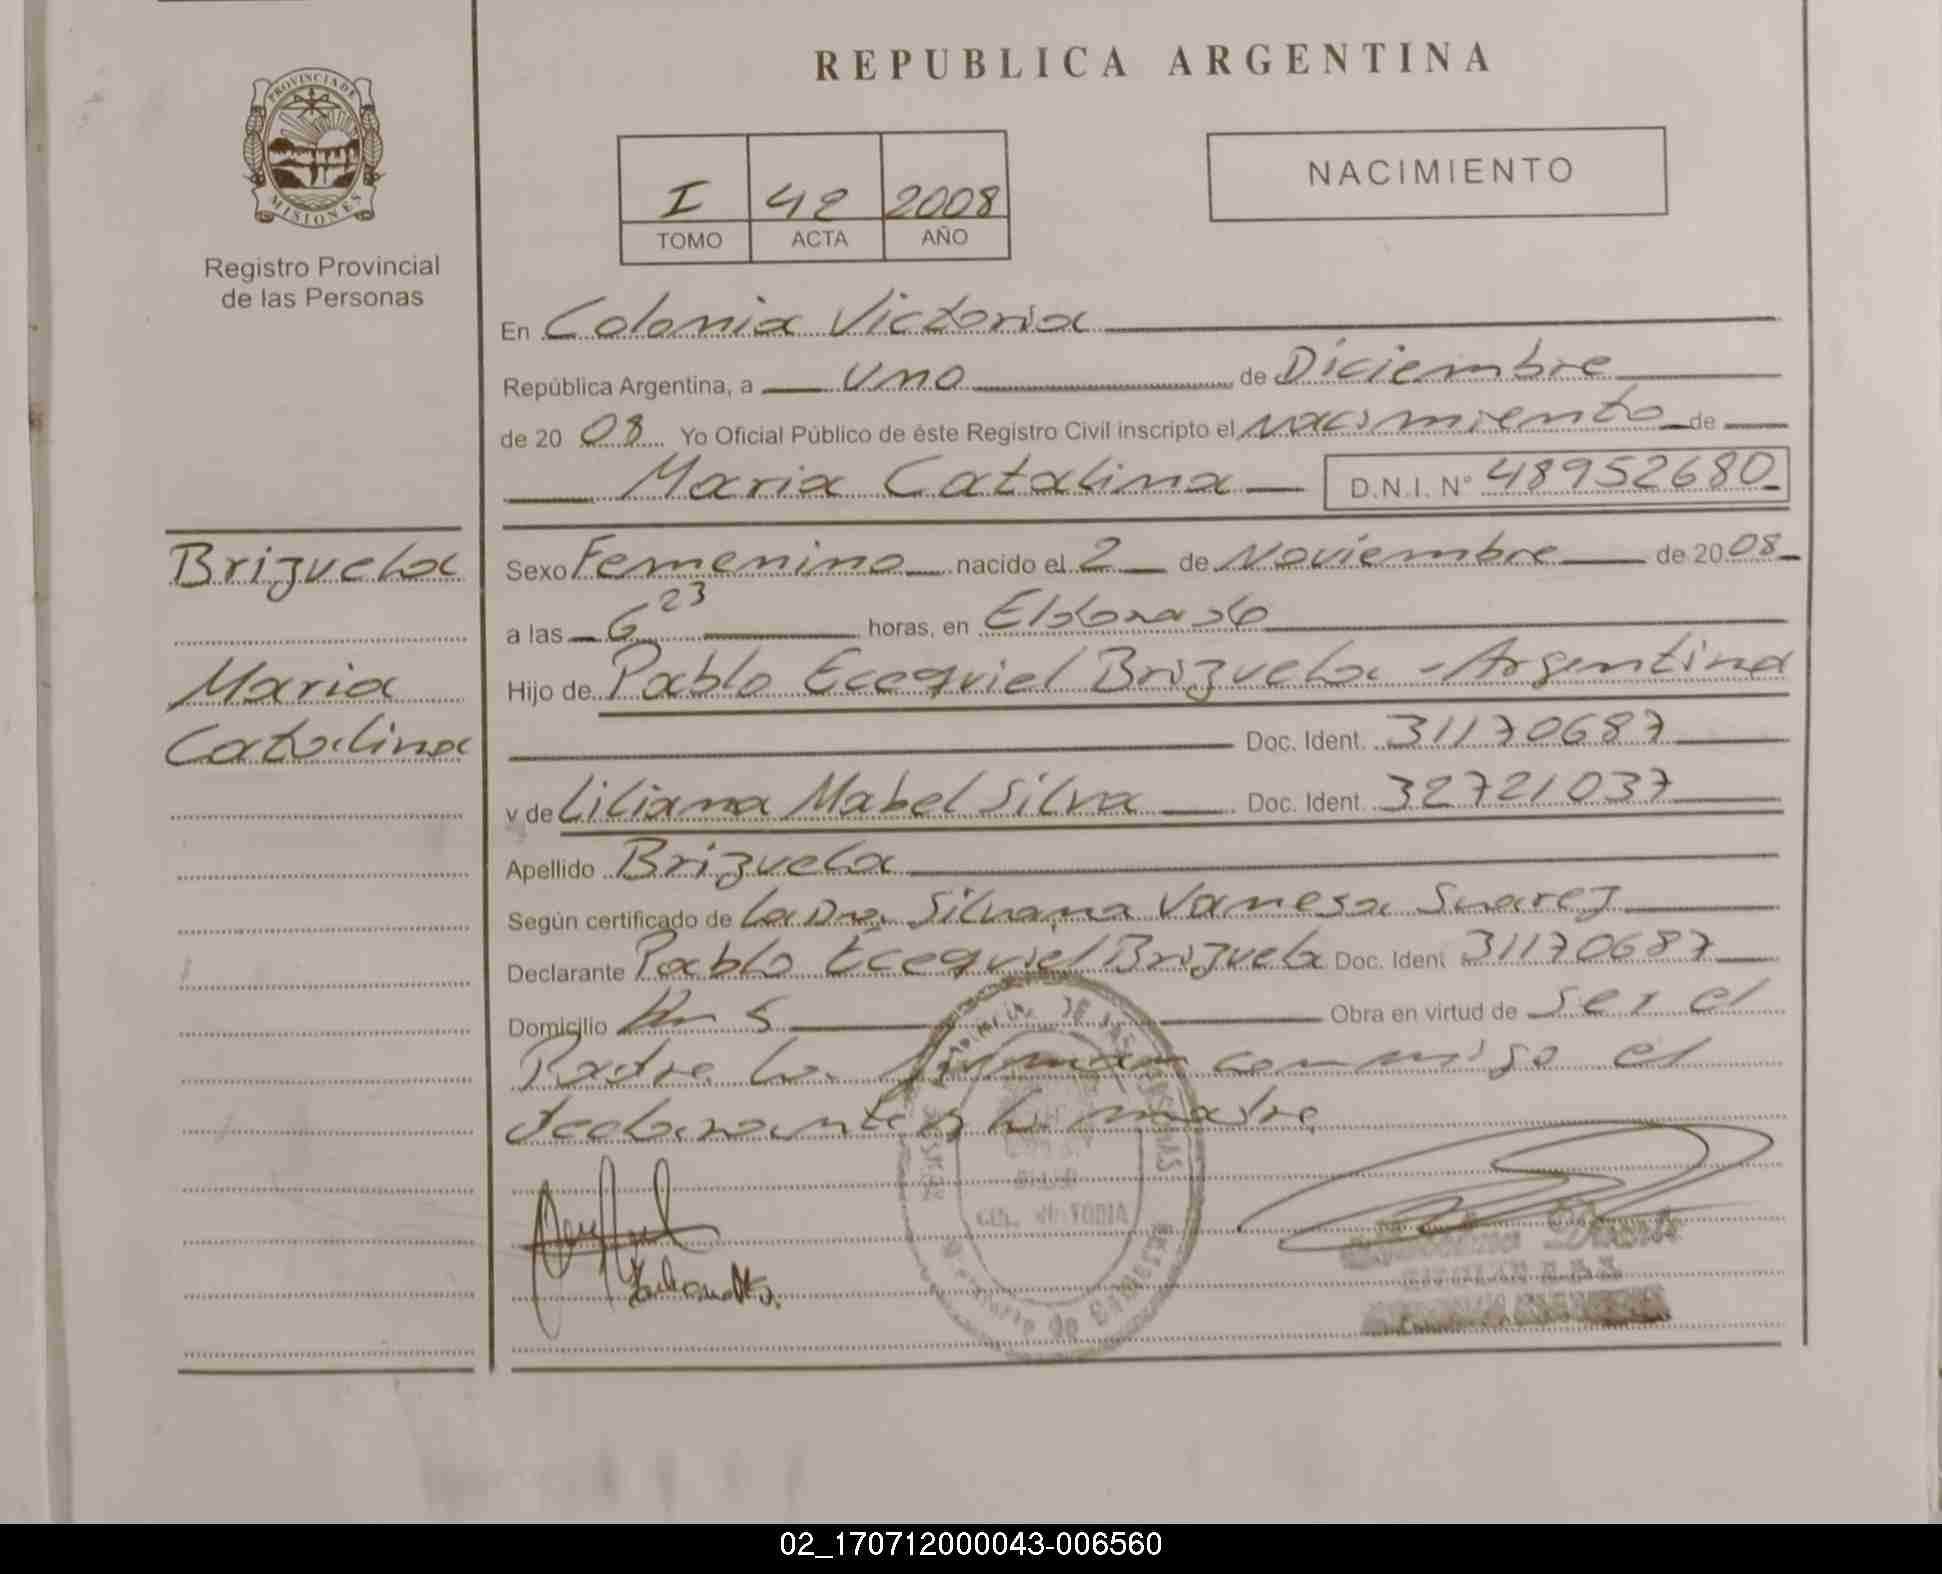 REPUBLICA ARGENTINA
PROVINCIA DE
MISIONES
Registro Provincial
de las Personas
I 42 2008
TOMO ACTA AÑO
NACIMIENTO
En Colonia Victoria
República Argentina, a uno de Diciembre
de 20 08 Yo Oficial Público de éste Registro Civil inscripto el nacimiento de
Maria Catalina D.N.I. N° 48952680
Brizuela
Maria
Catalina
Sexo Femenino nacido el 2 de Noviembre de 20 08
a las 6 23 horas, en Eldorado
Hijo de Pablo Ecequiel Brizuela - Argentina
Doc. Ident. 31170687
y de Liliana Mabel Silva Doc. Ident. 32721037
Apellido Brizuela
Según certificado de La Dra. Silvana Vanesa Suarez
Declarante Pablo Ecequiel Brizuela Doc. Ident 31170687
Domicilio Km 5 Obra en virtud de ser el
Padre La firman conmigo el
declarante y la madre
COL. VICTORIA
02_170712000043-006560